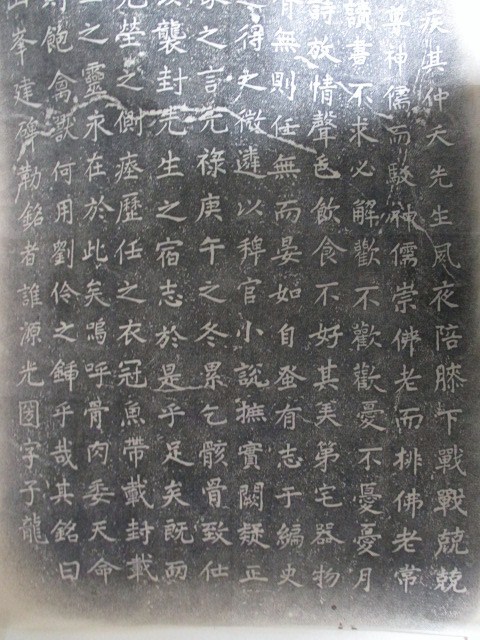 疾其仲夭先生夙夜陪膝下戰戰兢兢
尊神儒而駁神儒崇佛老而排佛老常
讀書不求必解歡不歡歡憂不憂憂月
詩放情聲色飲食不好其美第宅器物
胥無則任無而晏如自蚤有志于編史
得之微遴以稗官小説摭實闕疑正
家之言元祿庚午之冬累乞骸骨致仕
襲封先生之宿志於是乎足矣既而
先塋之側瘞歷任之衣冠魚帶載封載
之靈永在於此矣嗚呼骨肉委天命
則飽禽獸何用劉伶之鍤乎哉其銘曰
山峯建碑勒銘者誰源光圀字子龍